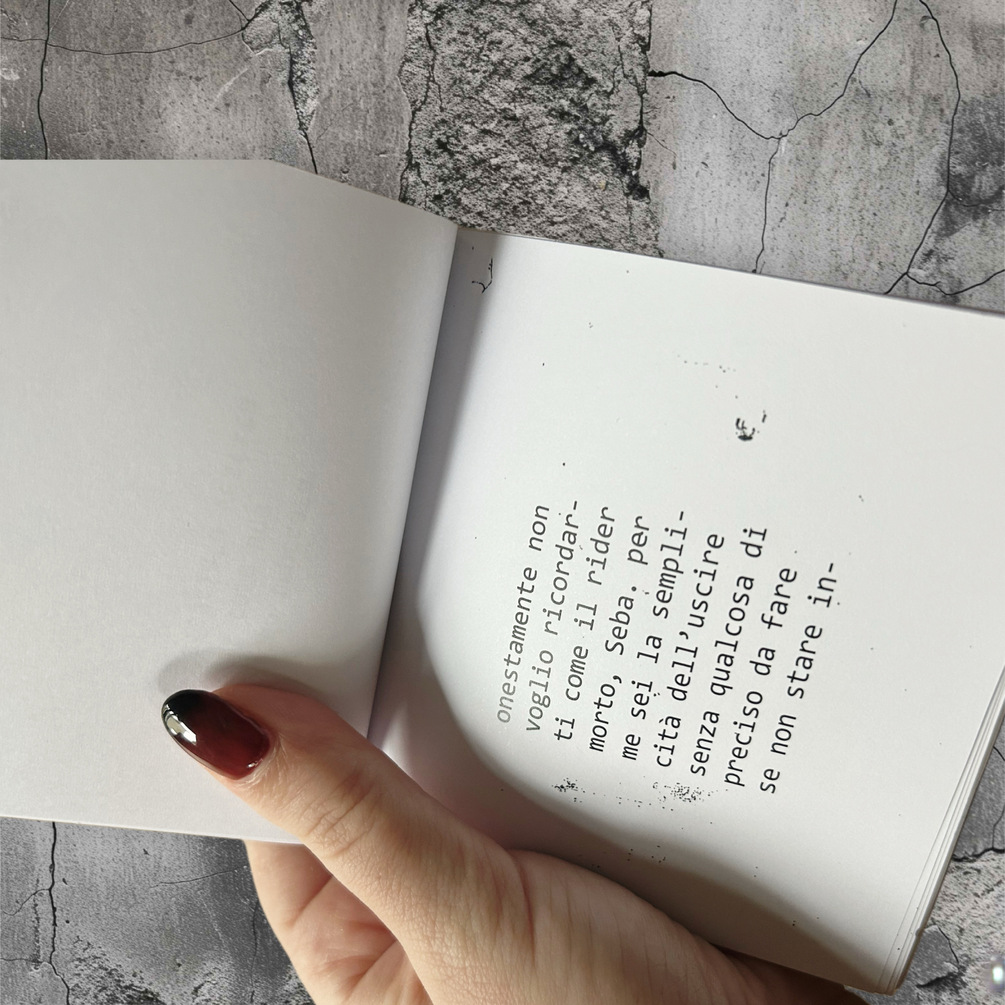 onestamente non
voglio ricordar-
ti come il rider
morto, Seba. per
me sei la sempli-
cità dell'uscire
senza qualcosa di
preciso da fare
se non stare in-